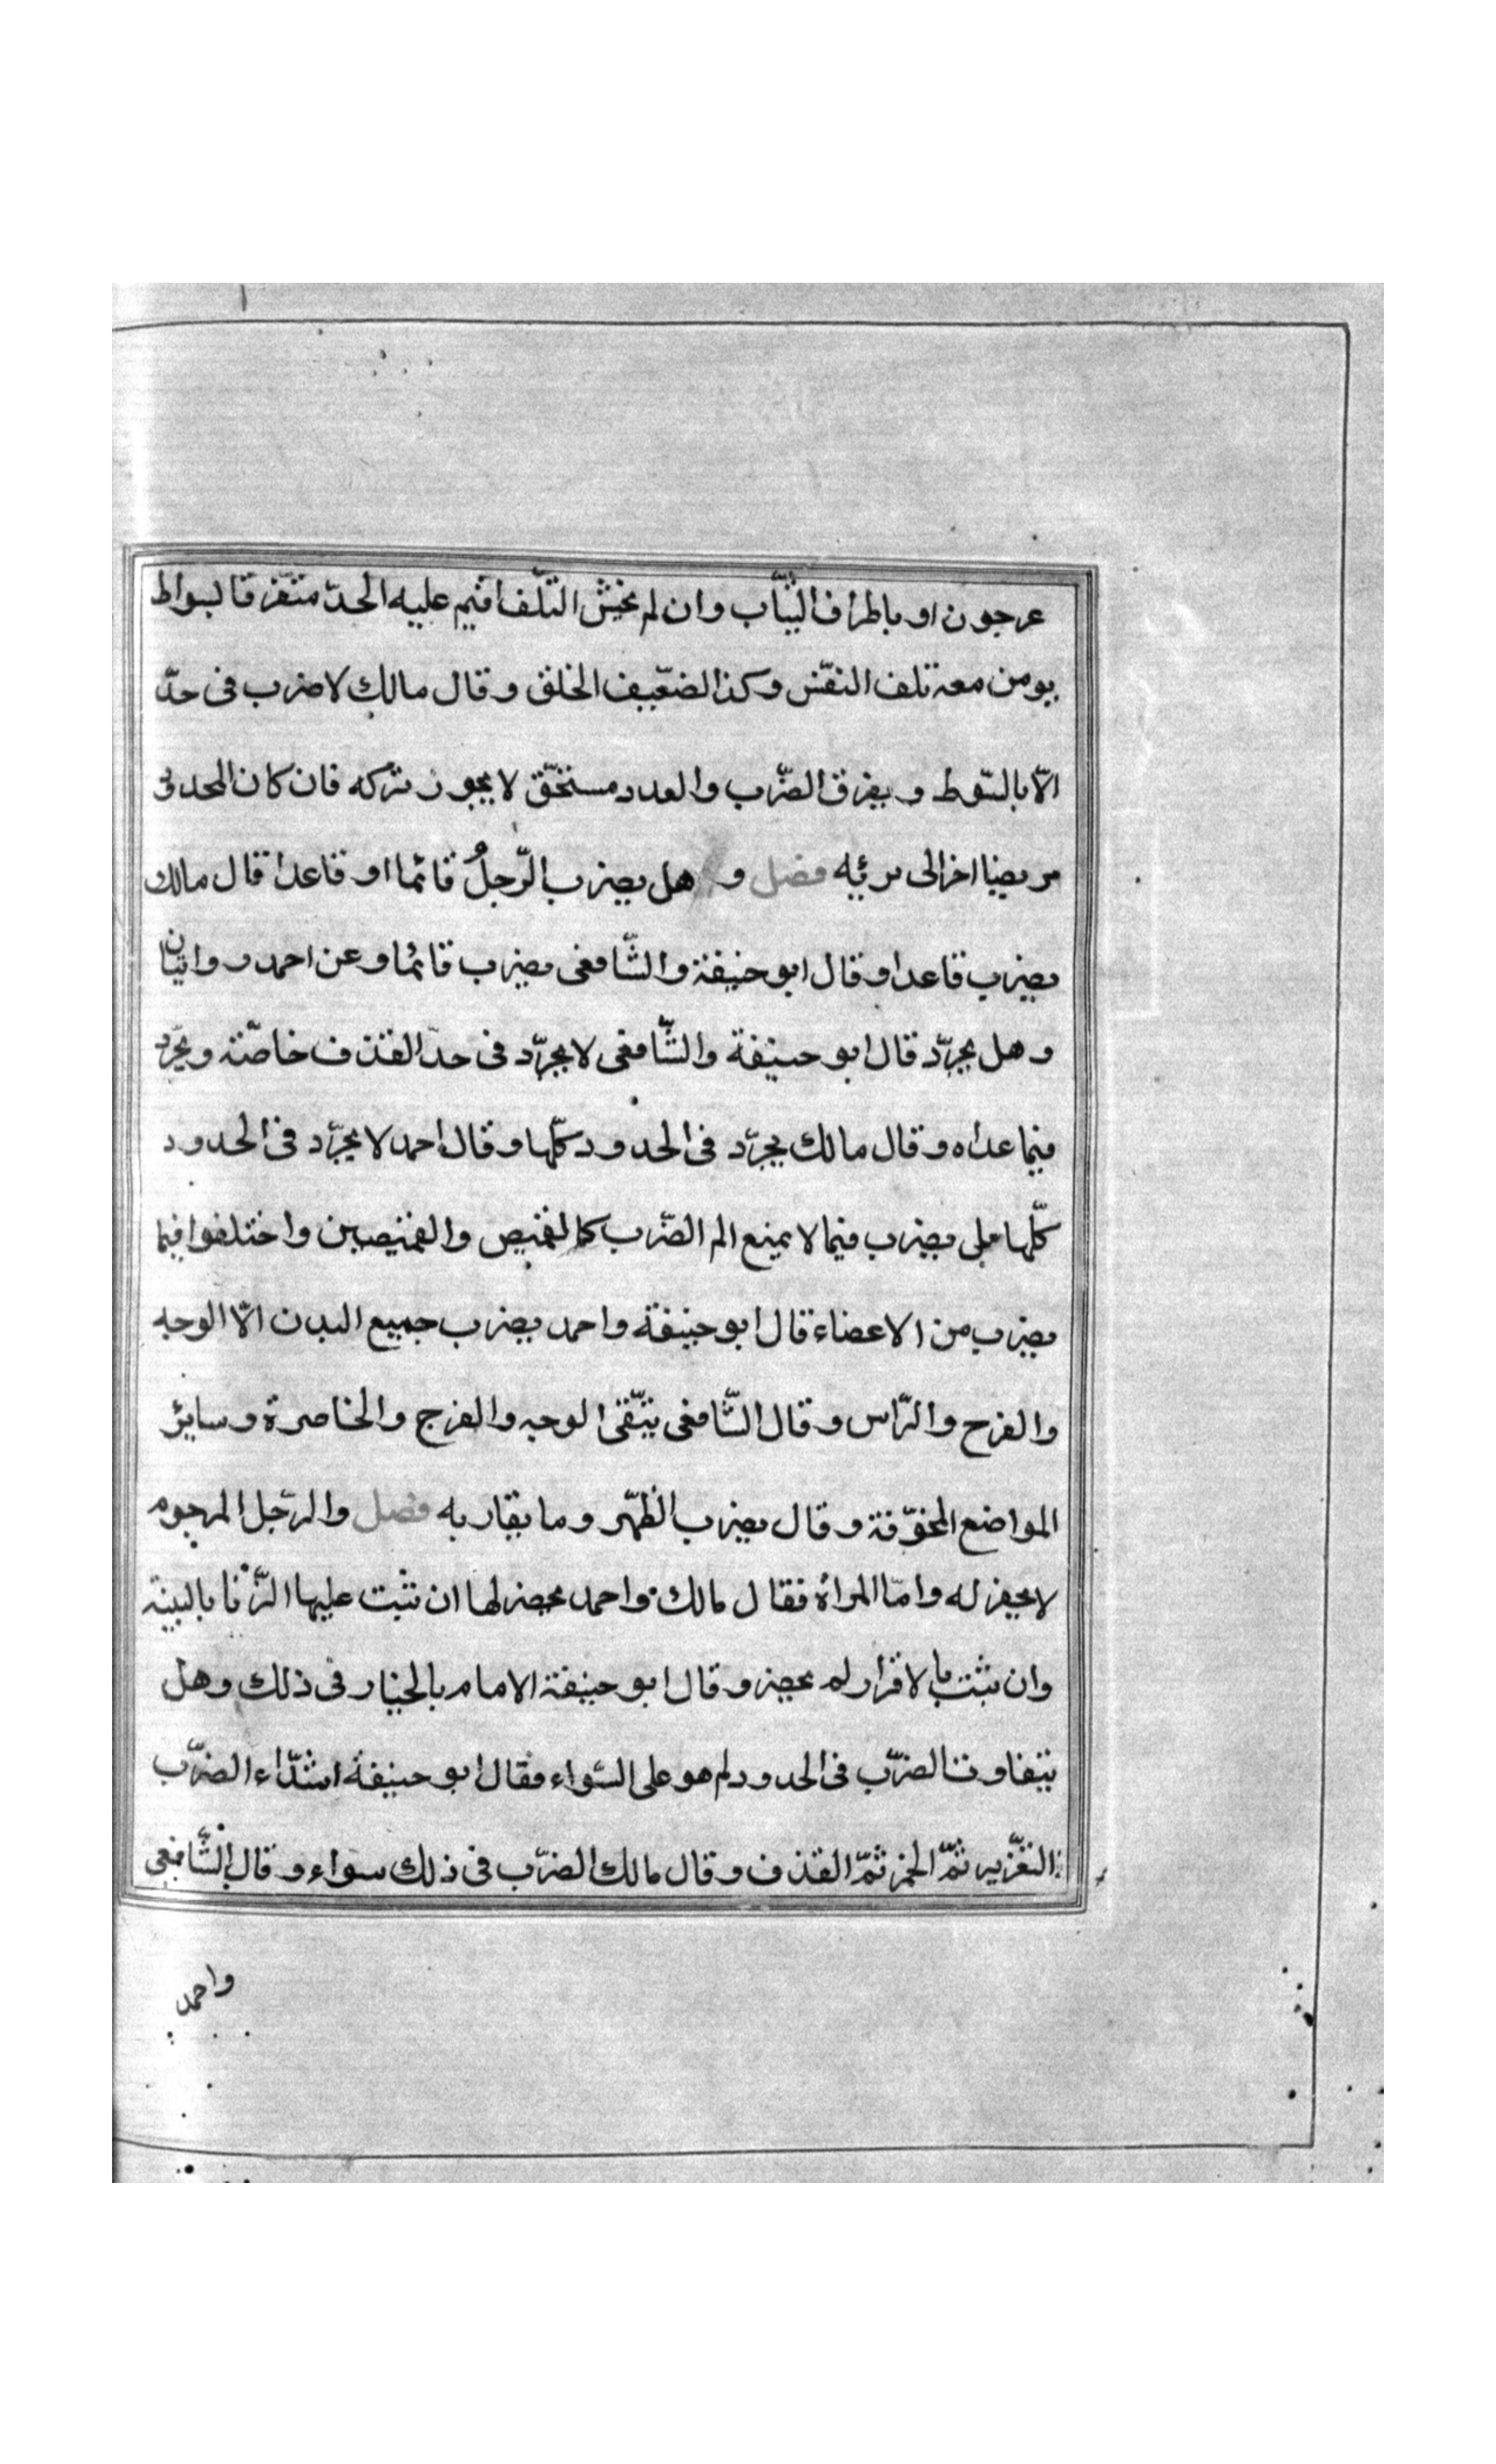 عرجون او باطراف الثياب وان لم يخش التّلف اقيم عليه الحدّ متفرقا بسواط
يومن معه تلف النفّس وكذا لضعّيف الخلق وقال مالك لا ضرب فى حدّ
الّا بالسّوط ويفرق الضّرب والعدد مستحّق لا يجوز تركه فان كان المحدود
مريضا اخر الى برئيه فصل و هل يضرب الرّجلُ قائما او قاعدا قال مالك
يضرب قاعدا وقال ابو حنيفة والشّافعى يضرب قائما وعن احمد روايتان
وهل يجرّد قال ابو حنيفة والشّافعى لا يجرّد فى حدّ القذف خاصّة ويجرّد
فيما عداه وقال مالك يجرّد فى الحدود كلّها وقال احمد لا يجرّد فى الحدود
كلّها بلى يضرب فيما لا يمنع الم الضّرب كالقميص والقميصين واختلفوا فيما
يضرب من الاعضاء قال ابو حنيفة واحمد يضرب جميع البدن الّا الوجه
والفرج والرّاس وقال الشّافعى يتّقى الوجه والفرج والخاصرة وسايرُ
المواضع المخوّفة وقال يضرب الظّهر وما يقاربه فصل والرّجل المرجوم
لا يحفر له وامّا المراة فقال مالك واحمد يحضر لها ان ثبت عليها الزّنا بالبينة
وان ثبت بالاقرار لم يحضر وقال ابو حنيفة الامام بالخيار فى ذلك وهل
يتفاوت الضرّب فى الحدود لم هو على السّواء فقال ابو حنيفة اشدّاء الضرّب
التّعزير ثمّ الخمر ثمّ القذف وقال مالك الضرّب فى ذلك سواء وقال الشّافعى
واحمد